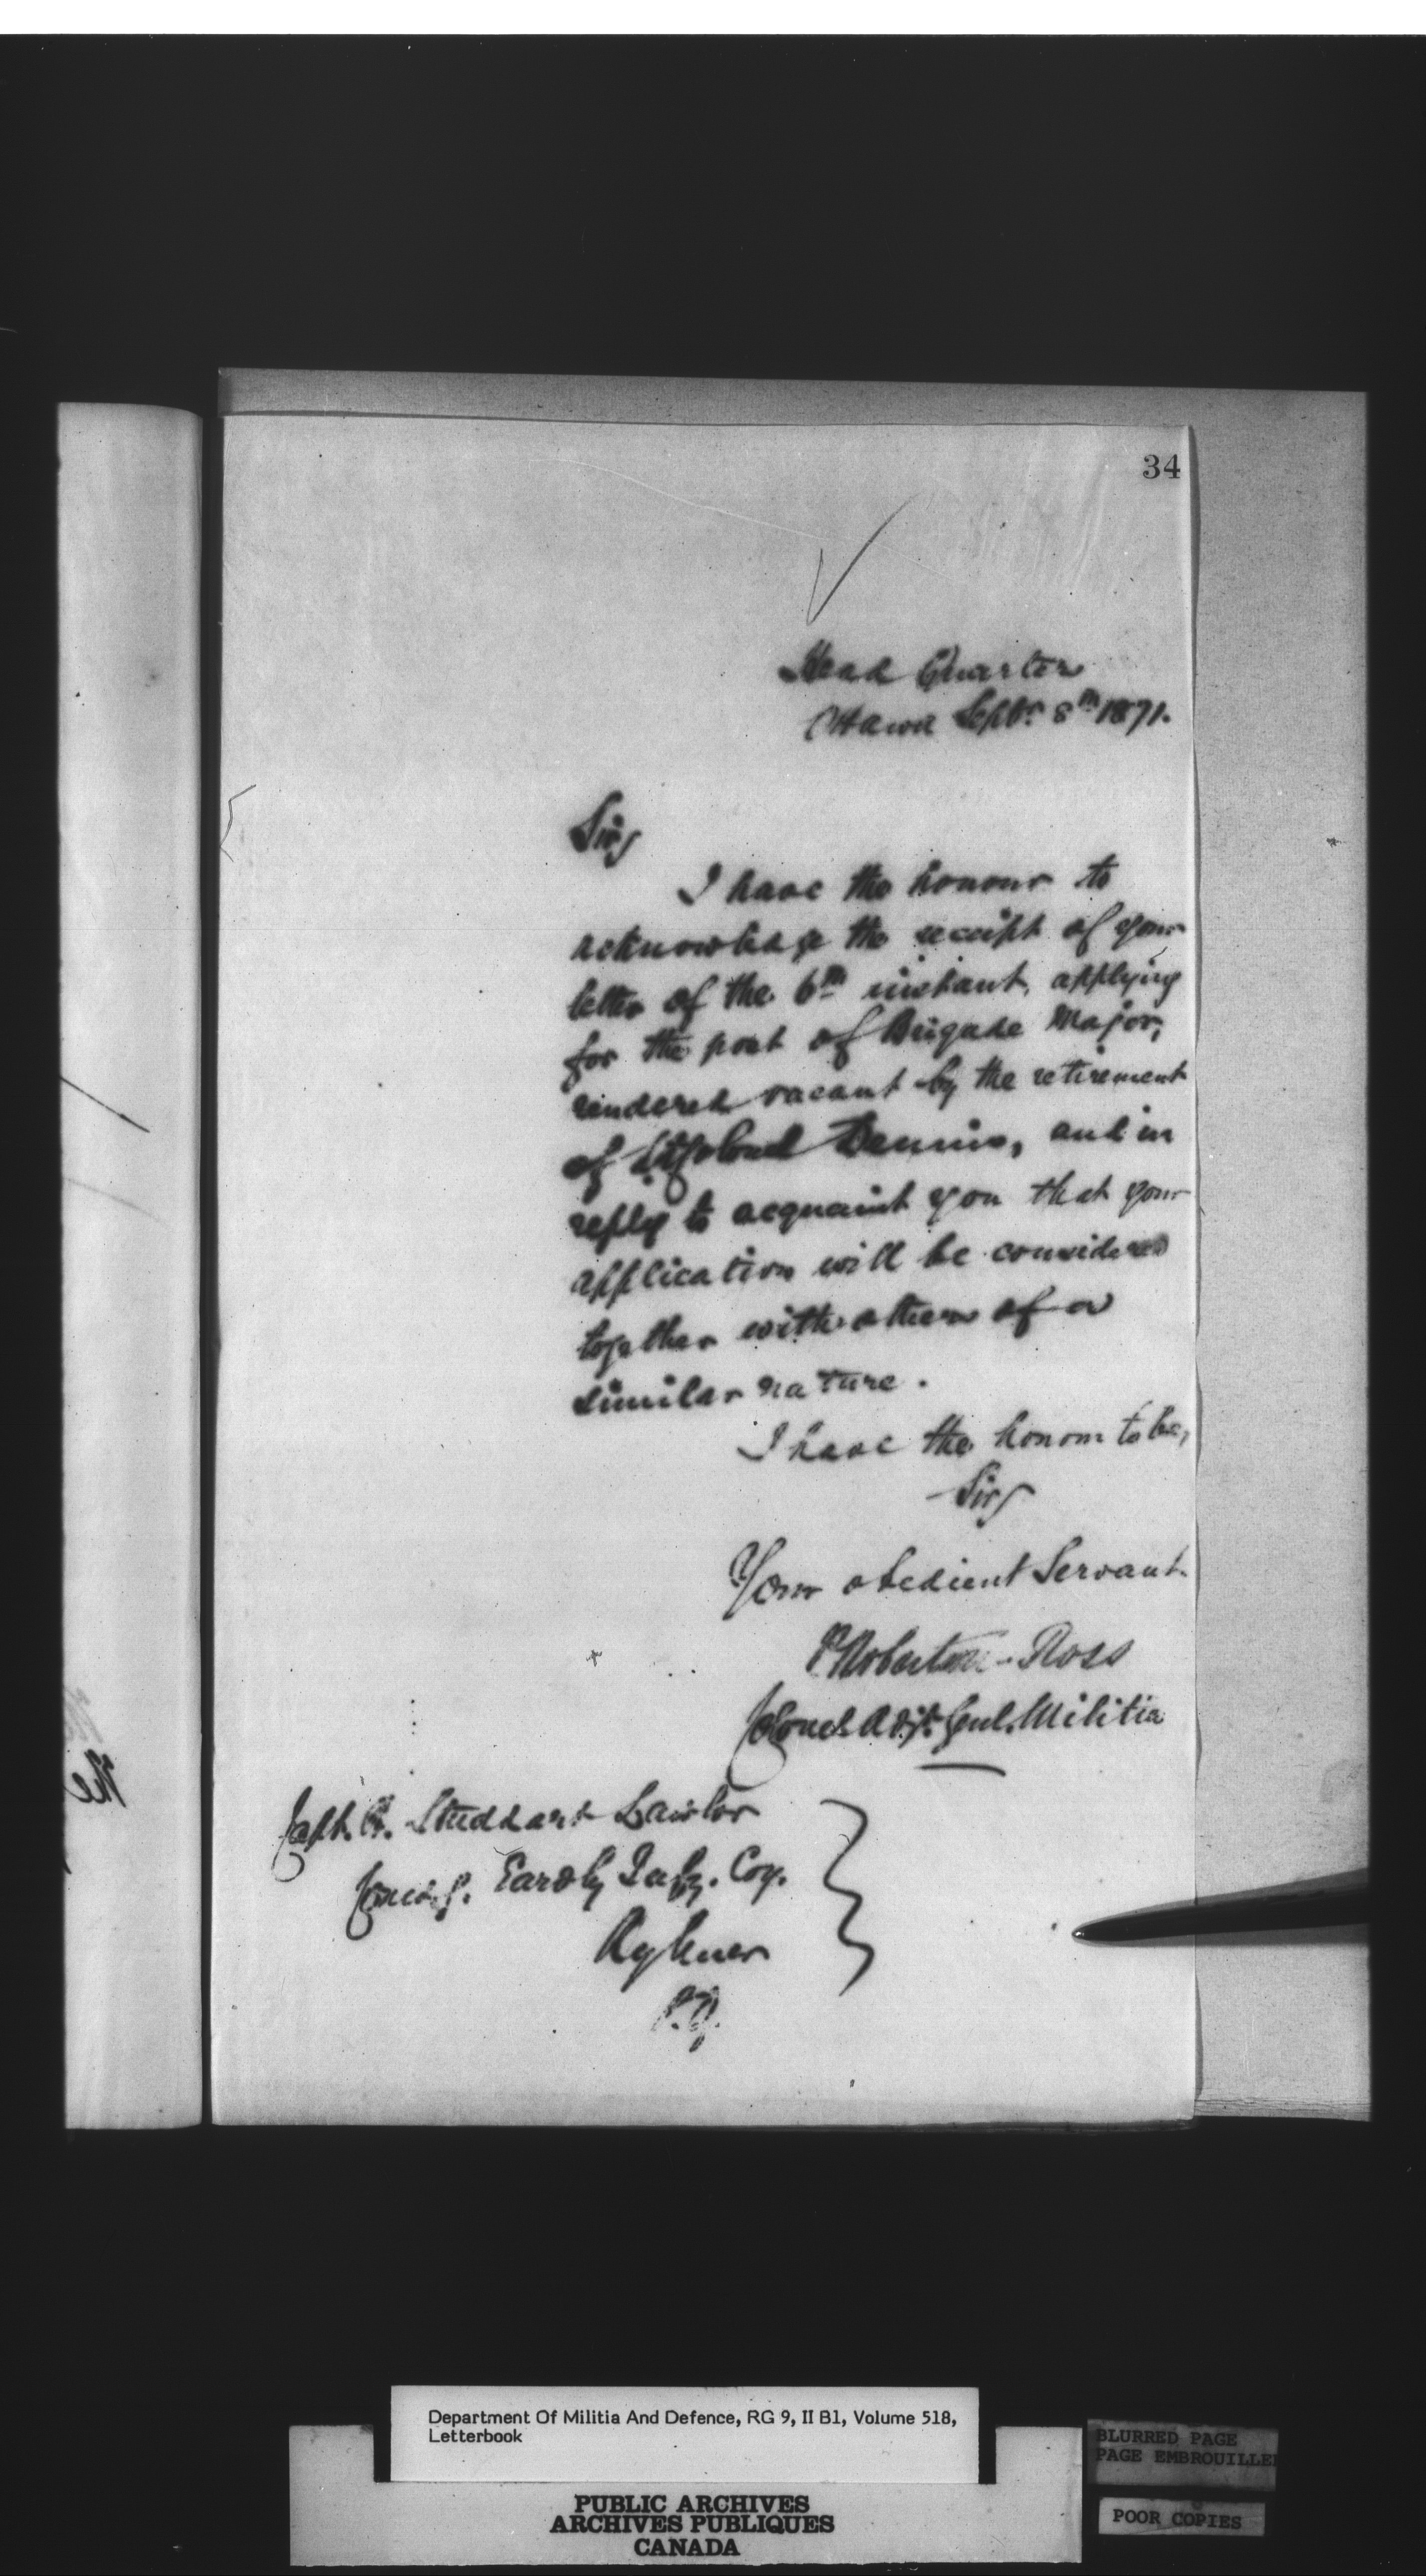 34
Head Quarters
Ottawa Septr. 8th 1871.
Sir,
I have the honour to
acknowledge the receipt of your
letter of the 6th instant, applying
for the post of Brigade Major,
rendered vacant by the retirement
of Lt. Colonel Dennis, and in
reply to acquaint you that your
application will be considered
together with others of a
similar nature.
I have the honor to be,
Sir,
Your obedient Servant.
P Robertson-Ross
Colonel Adjt. Genl. Militia
Capt. Studdart Lawlor
Comdg. Eardly Infy. Coy.
P.Q.
The
Department Of Militia And Defence, RG 9, II B1, Volume 518,
Letterbook
PUBLIC ARCHIVES
ARCHIVES PUBLIQUES
CANADA
BLURRED PAGE
PAGE EMBROUILLEE
POOR COPIES